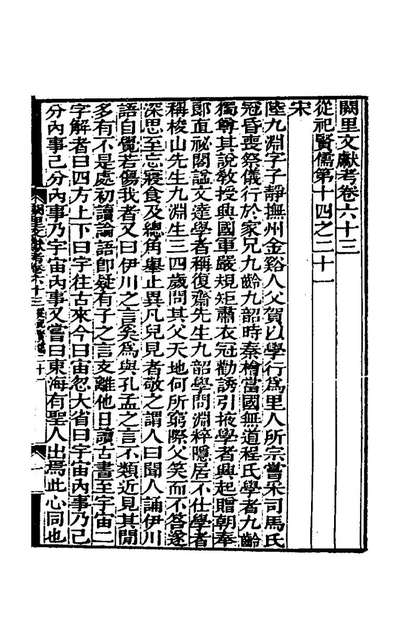 闕里文獻考卷六十三
從祀賢儒第十四之二十一
宋
陸九淵字子靜撫州金谿人父賀以學行爲里人所宗嘗采司馬氏
冠昏喪祭儀行於家兄九齡九韶時秦檜當國無道程氏學者九齡
獨尊其說教授興國軍嚴規矩肅衣冠勸誘引掖學者興起贈朝奉
郎直祕閣諡文達學者稱復齋先生九韶學問淵粹隱居不仕學者
稱梭山先生九淵生三四歲問其父天地何所窮際父笑而不答遂
深思至忘寢食及總角舉止異凡兒見者敬之謂人曰聞人誦伊川
語自覺若傷我者又曰伊川之言奚爲與孔孟之言不類近見其閒
多有不是處初讀論語即疑有子之言支離他日讀古書至宇宙二
字解者曰四方上下曰宇往古來今曰宙忽大省曰宇宙內事乃己
分內事己分內事乃宇宙內事又嘗曰東海有聖人出焉此心同也
闕里文獻考卷六十三